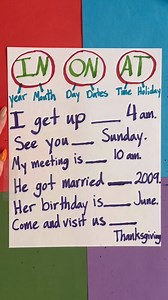 IN ON AT
Year Month Day Dates Time Holiday
I get up __ 4 am.
See you __ Sunday.
My meeting is __ 10 am.
He got married __ 2009.
Her birthday is __ June.
Come and visit us __
Thanksgiving